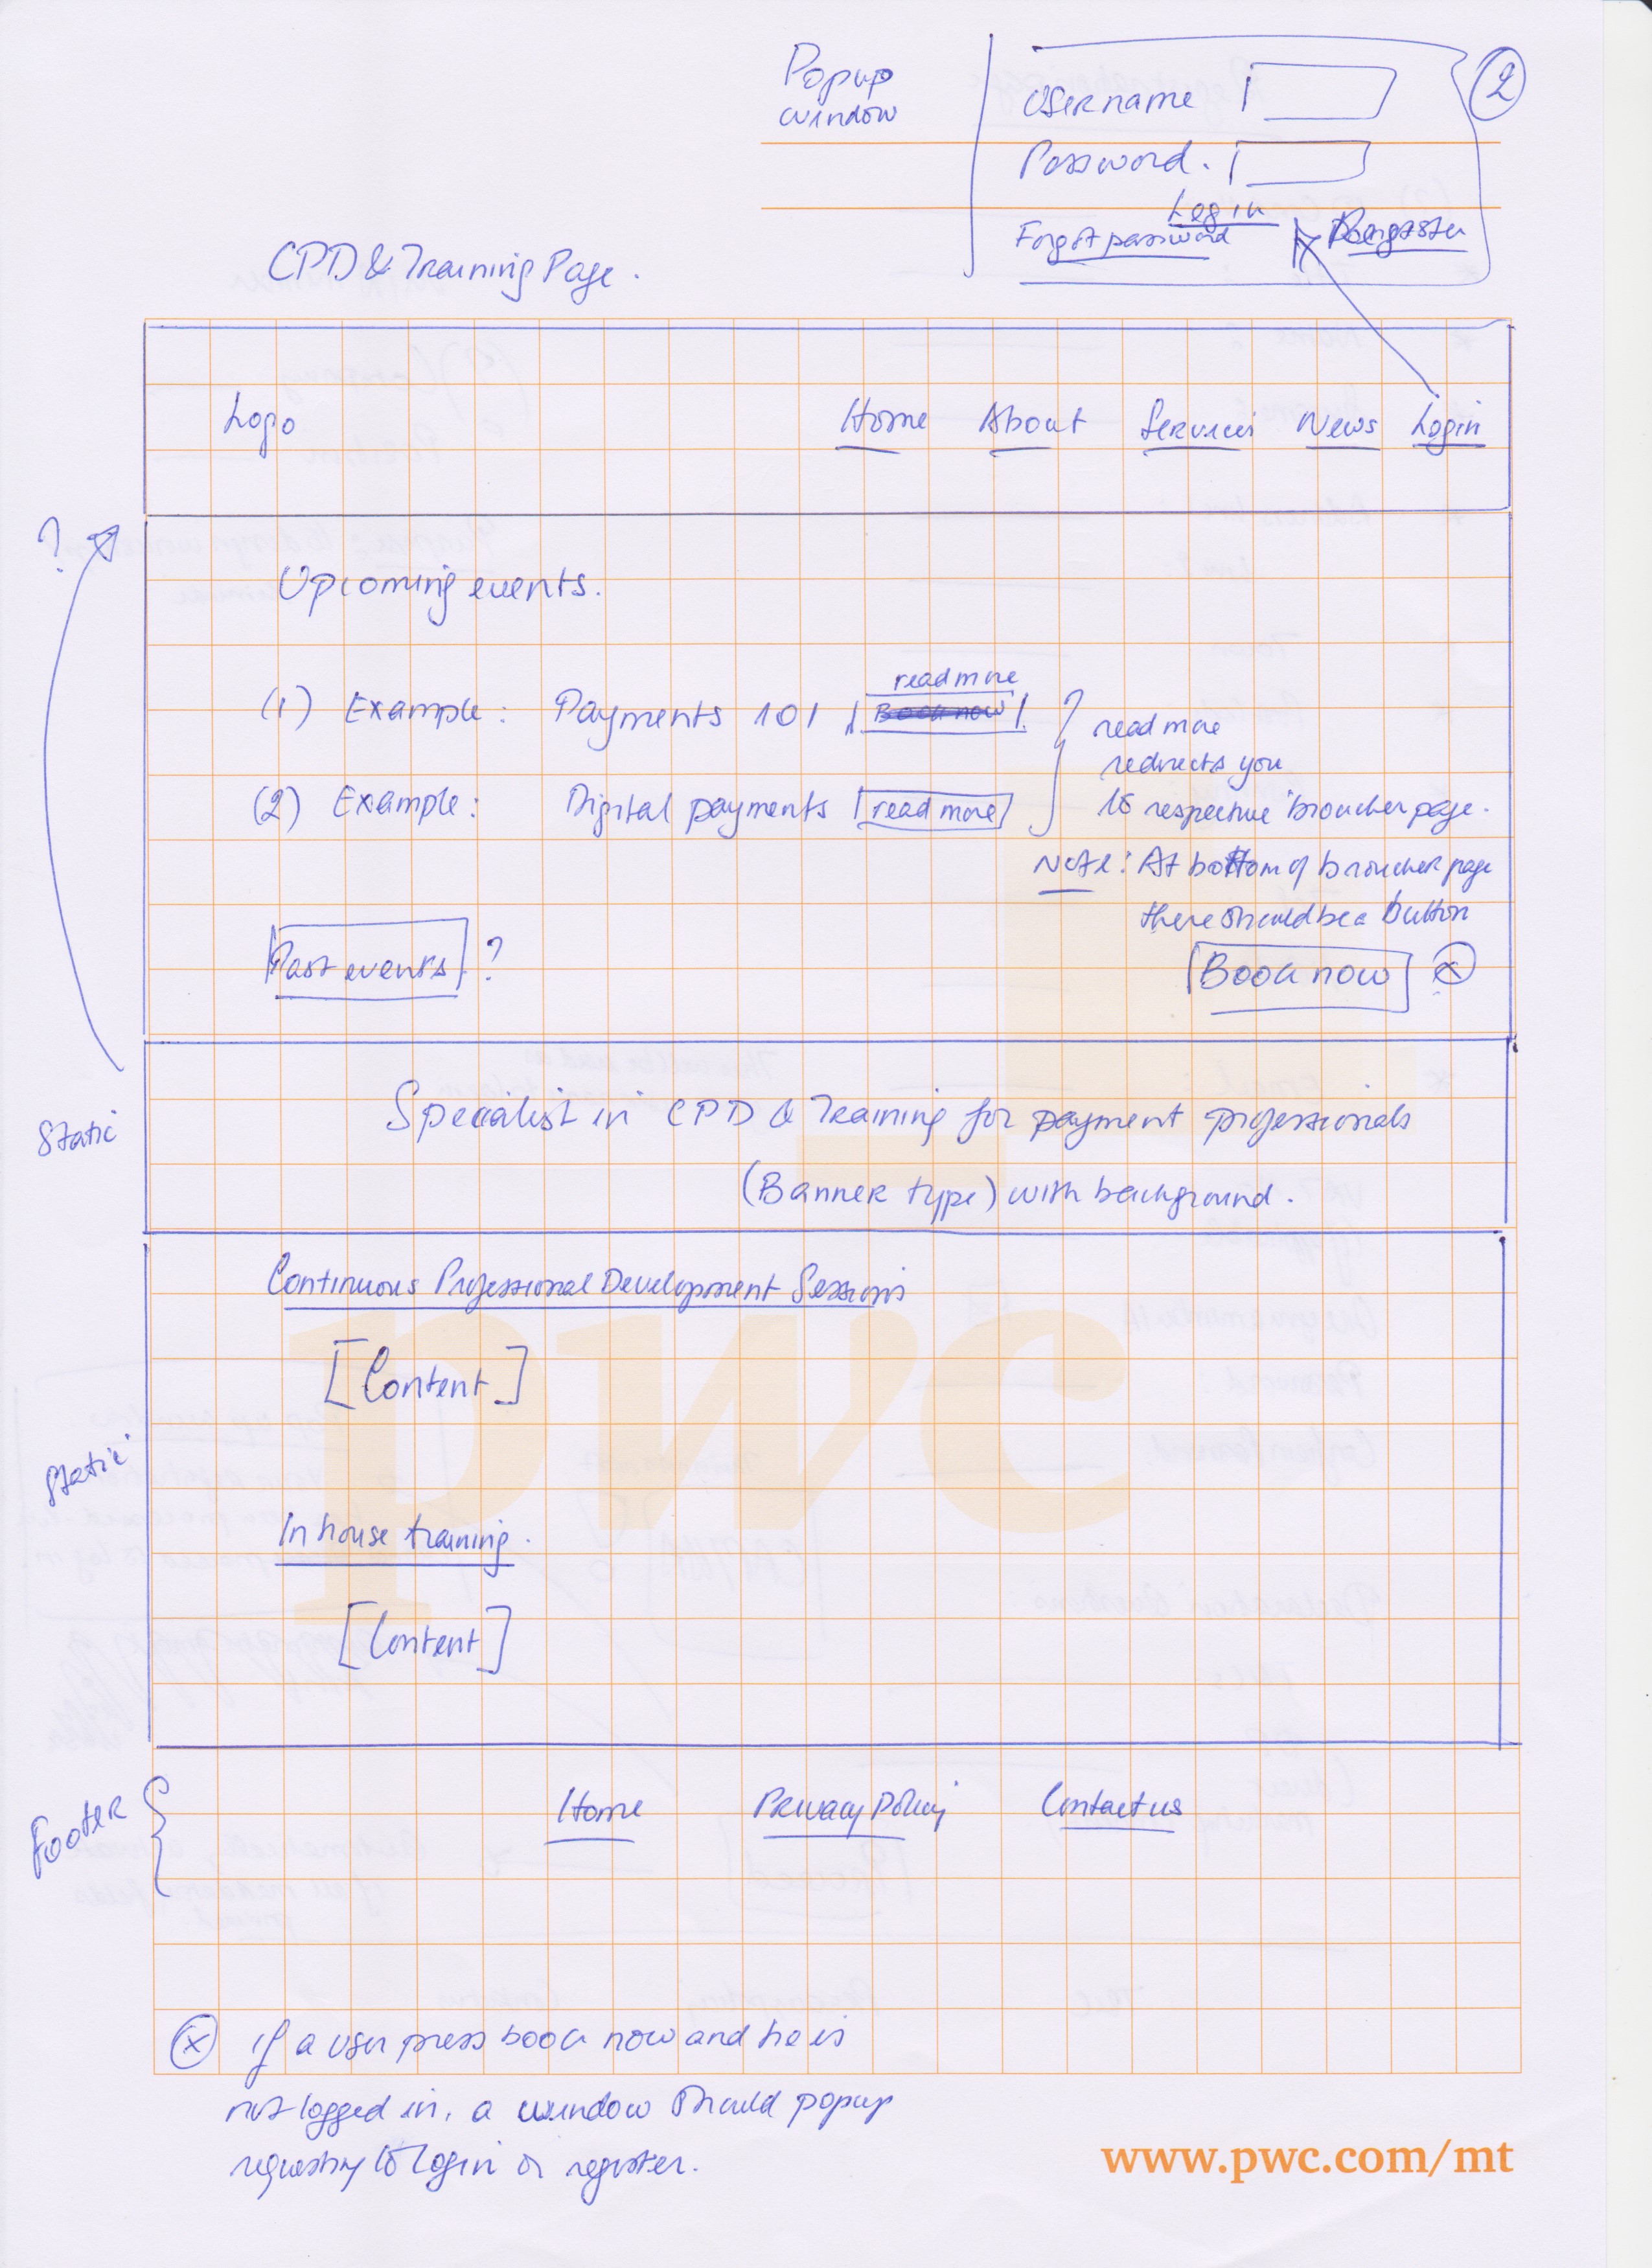 Popup
window
Username
2
Password.
Login
Forgot password
Register
CPD & Training Page.
Logo Home About Services News Login
?
Upcoming events.
read more
(1) Example: Payments 101 Book now ?
read more
redirects you
to respective broucher page.
(2) Example: Digital payments read more
Note: At bottom of broucher page
there should be a button
Past events ?
Book now x
Static
Specialist in CPD & Training for payment professionals
(Banner type) with background.
Continuous Professional Development Sessions
[Content]
Static
In house training.
[Content]
Footer
Home Privacy Policy Contact us
x if a user press book now and he is
not logged in, a window should popup
requesting to login or register.
pwc
www.pwc.com/mt